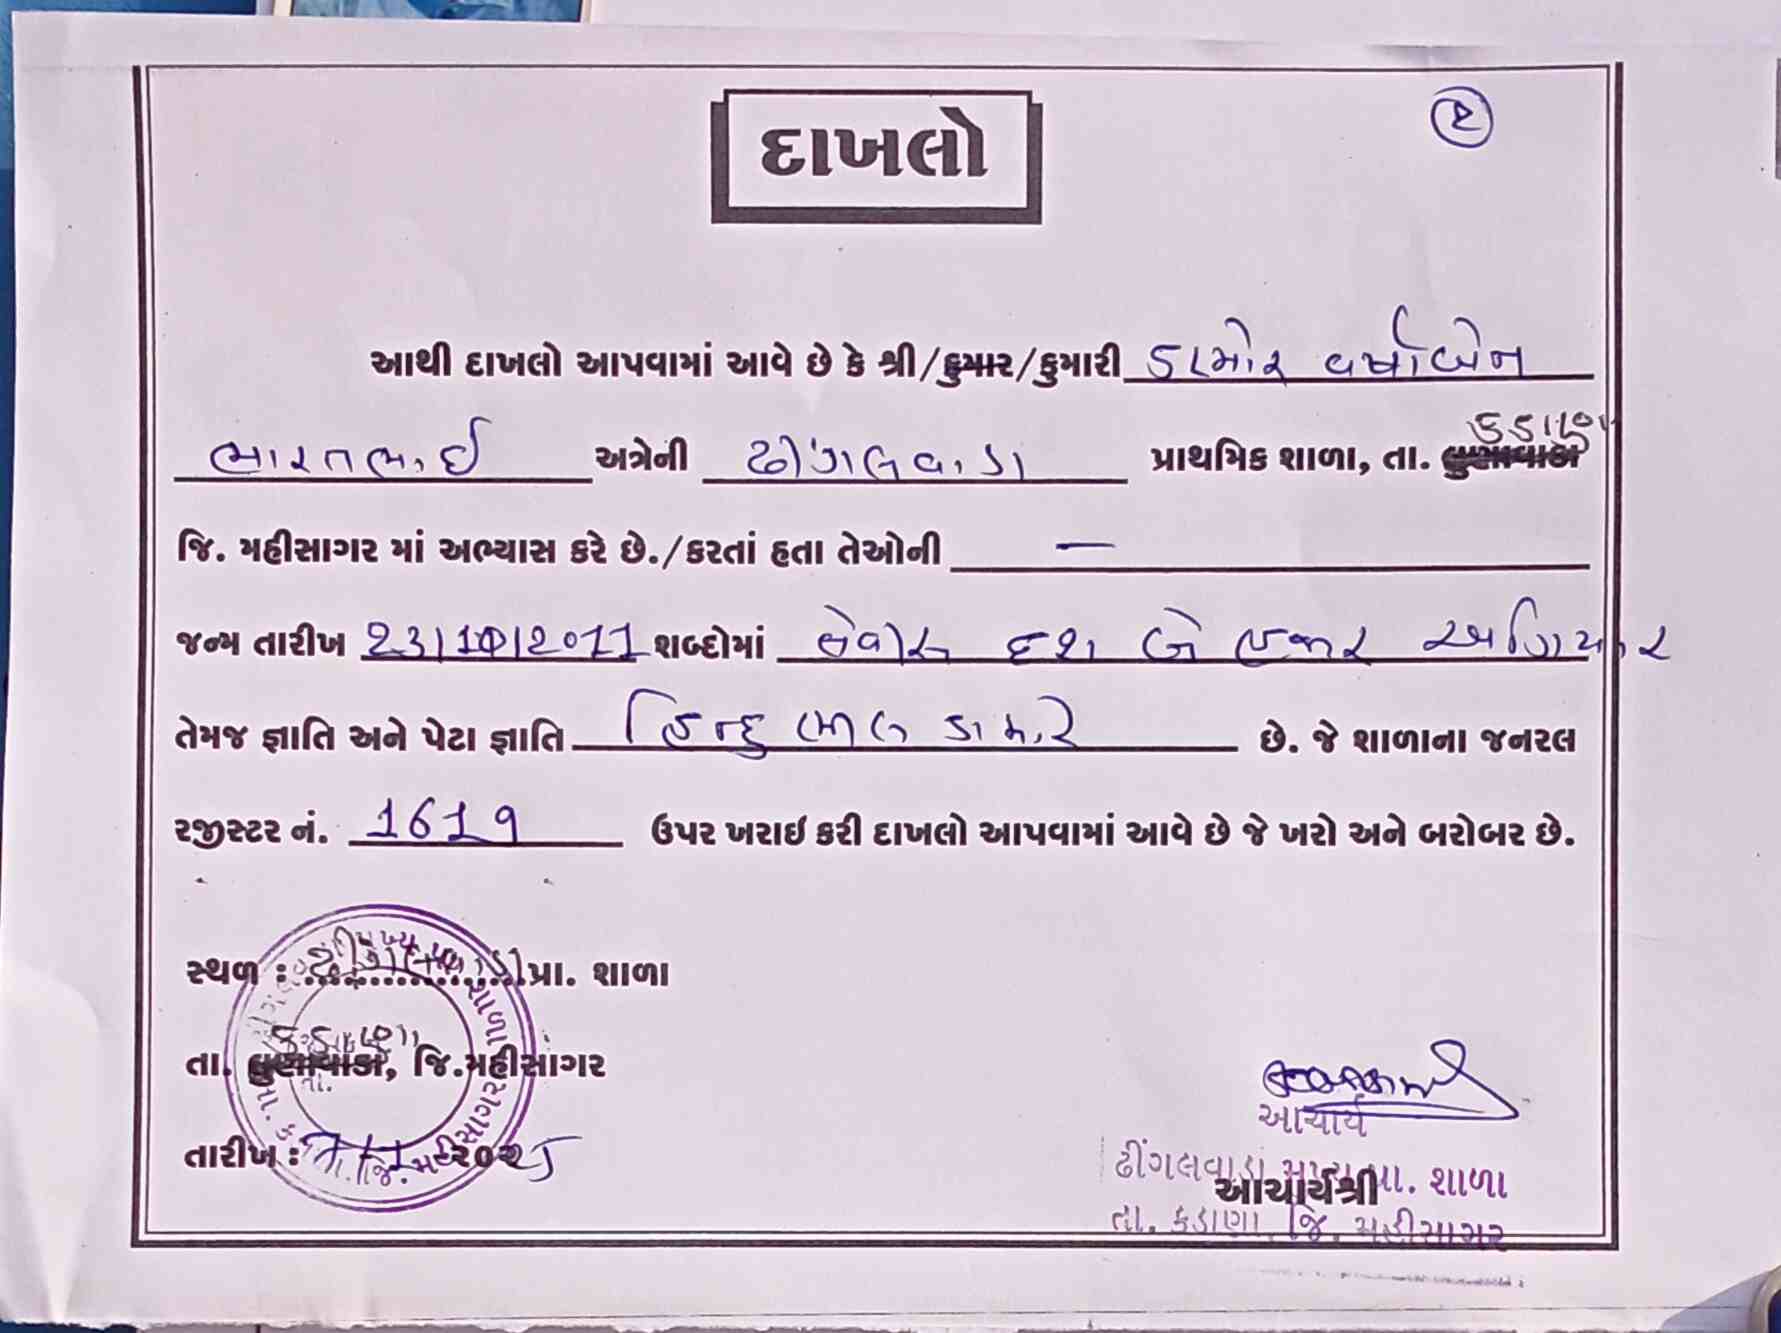 દાખલો
૨
આથી દાખલો આપવામાં આવે છે કે શ્રી/કુમાર/કુમારી ડામોર વર્ષાબેન
ભારતભાઈ અત્રેની ઢીંગલવાડા પ્રાથમિક શાળા, તા. લુણાવાડા કડાણા
જિ. મહીસાગર માં અભ્યાસ કરે છે./કરતાં હતા તેઓની —
જન્મ તારીખ 23/10/2011 શબ્દોમાં ત્રેવીસ દશ બે હજાર અગિયાર
તેમજ જ્ઞાતિ અને પેટા જ્ઞાતિ હિન્દુ ભીલ ડામોર છે. જે શાળાના જનરલ
રજીસ્ટર નં. 1619 ઉપર ખરાઇ કરી દાખલો આપવામાં આવે છે જે ખરો અને બરોબર છે.
સ્થળ : ઢીંગલવાડા પ્રા. શાળા
તા. લુણાવાડા, કડાણા જિ.મહીસાગર
તારીખ : ૨૦૨5
આચાર્ય
ઢીંગલવાડા મુખ્ય પ્રા. શાળા
આચાર્યશ્રી
તા. કડાણા જિ. મહીસાગર